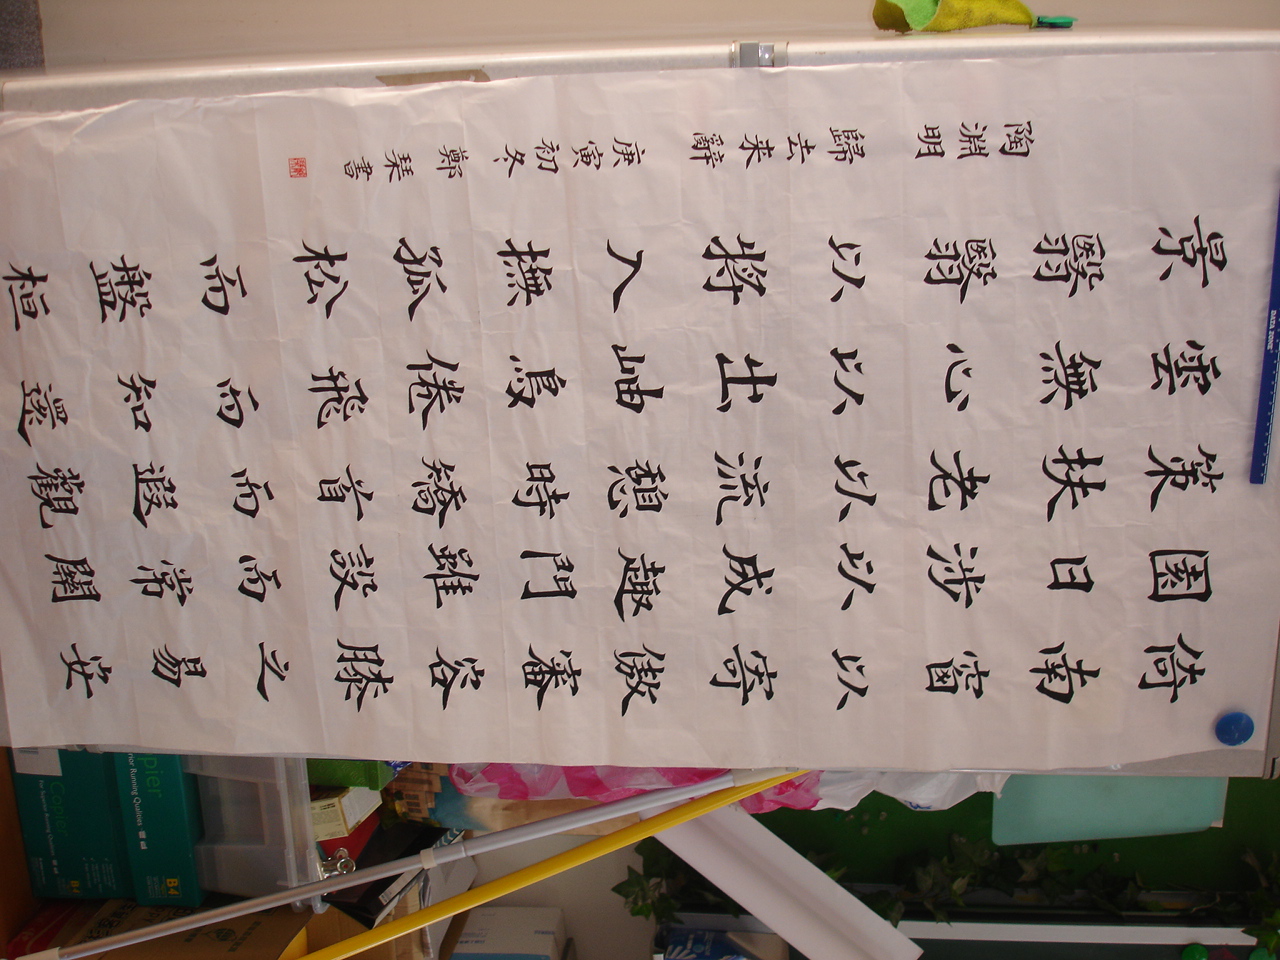 倚南窗以寄傲審容膝之易安
園日涉以成趣門雖設而常關
策扶老以流憩時矯首而遐觀
雲無心以出岫鳥倦飛而知還
景翳翳以將入撫孤松而盤桓
陶淵明歸去来辭庚寅初冬鄭琹書
DATA ZONE
Copier
B4
B4